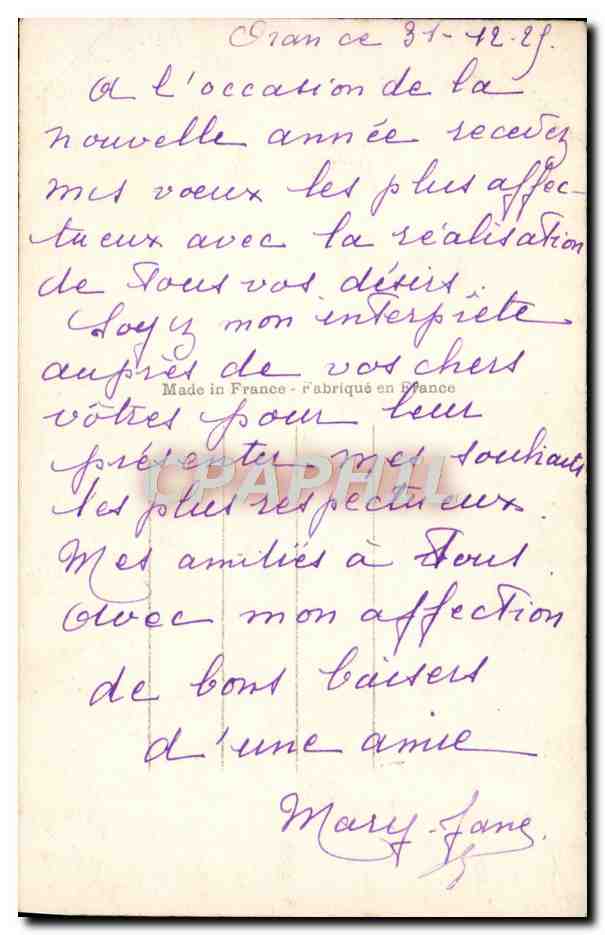 Oran ce 31-12-25.
A l'occasion de la
nouvelle année recevez
mes voeux les plus affec-
tueux avec la réalisation
de tous vos désirs.
Soyez mon interprète
auprès de vos chers
Made in France - Fabriqué en France
vôtres pour leur
présenter mes souhaits
CPAPHIL
les plus respectueux.
Mes amitiés à tous
avec mon affection
de bons baisers
d'une amie
Mary-Jane.